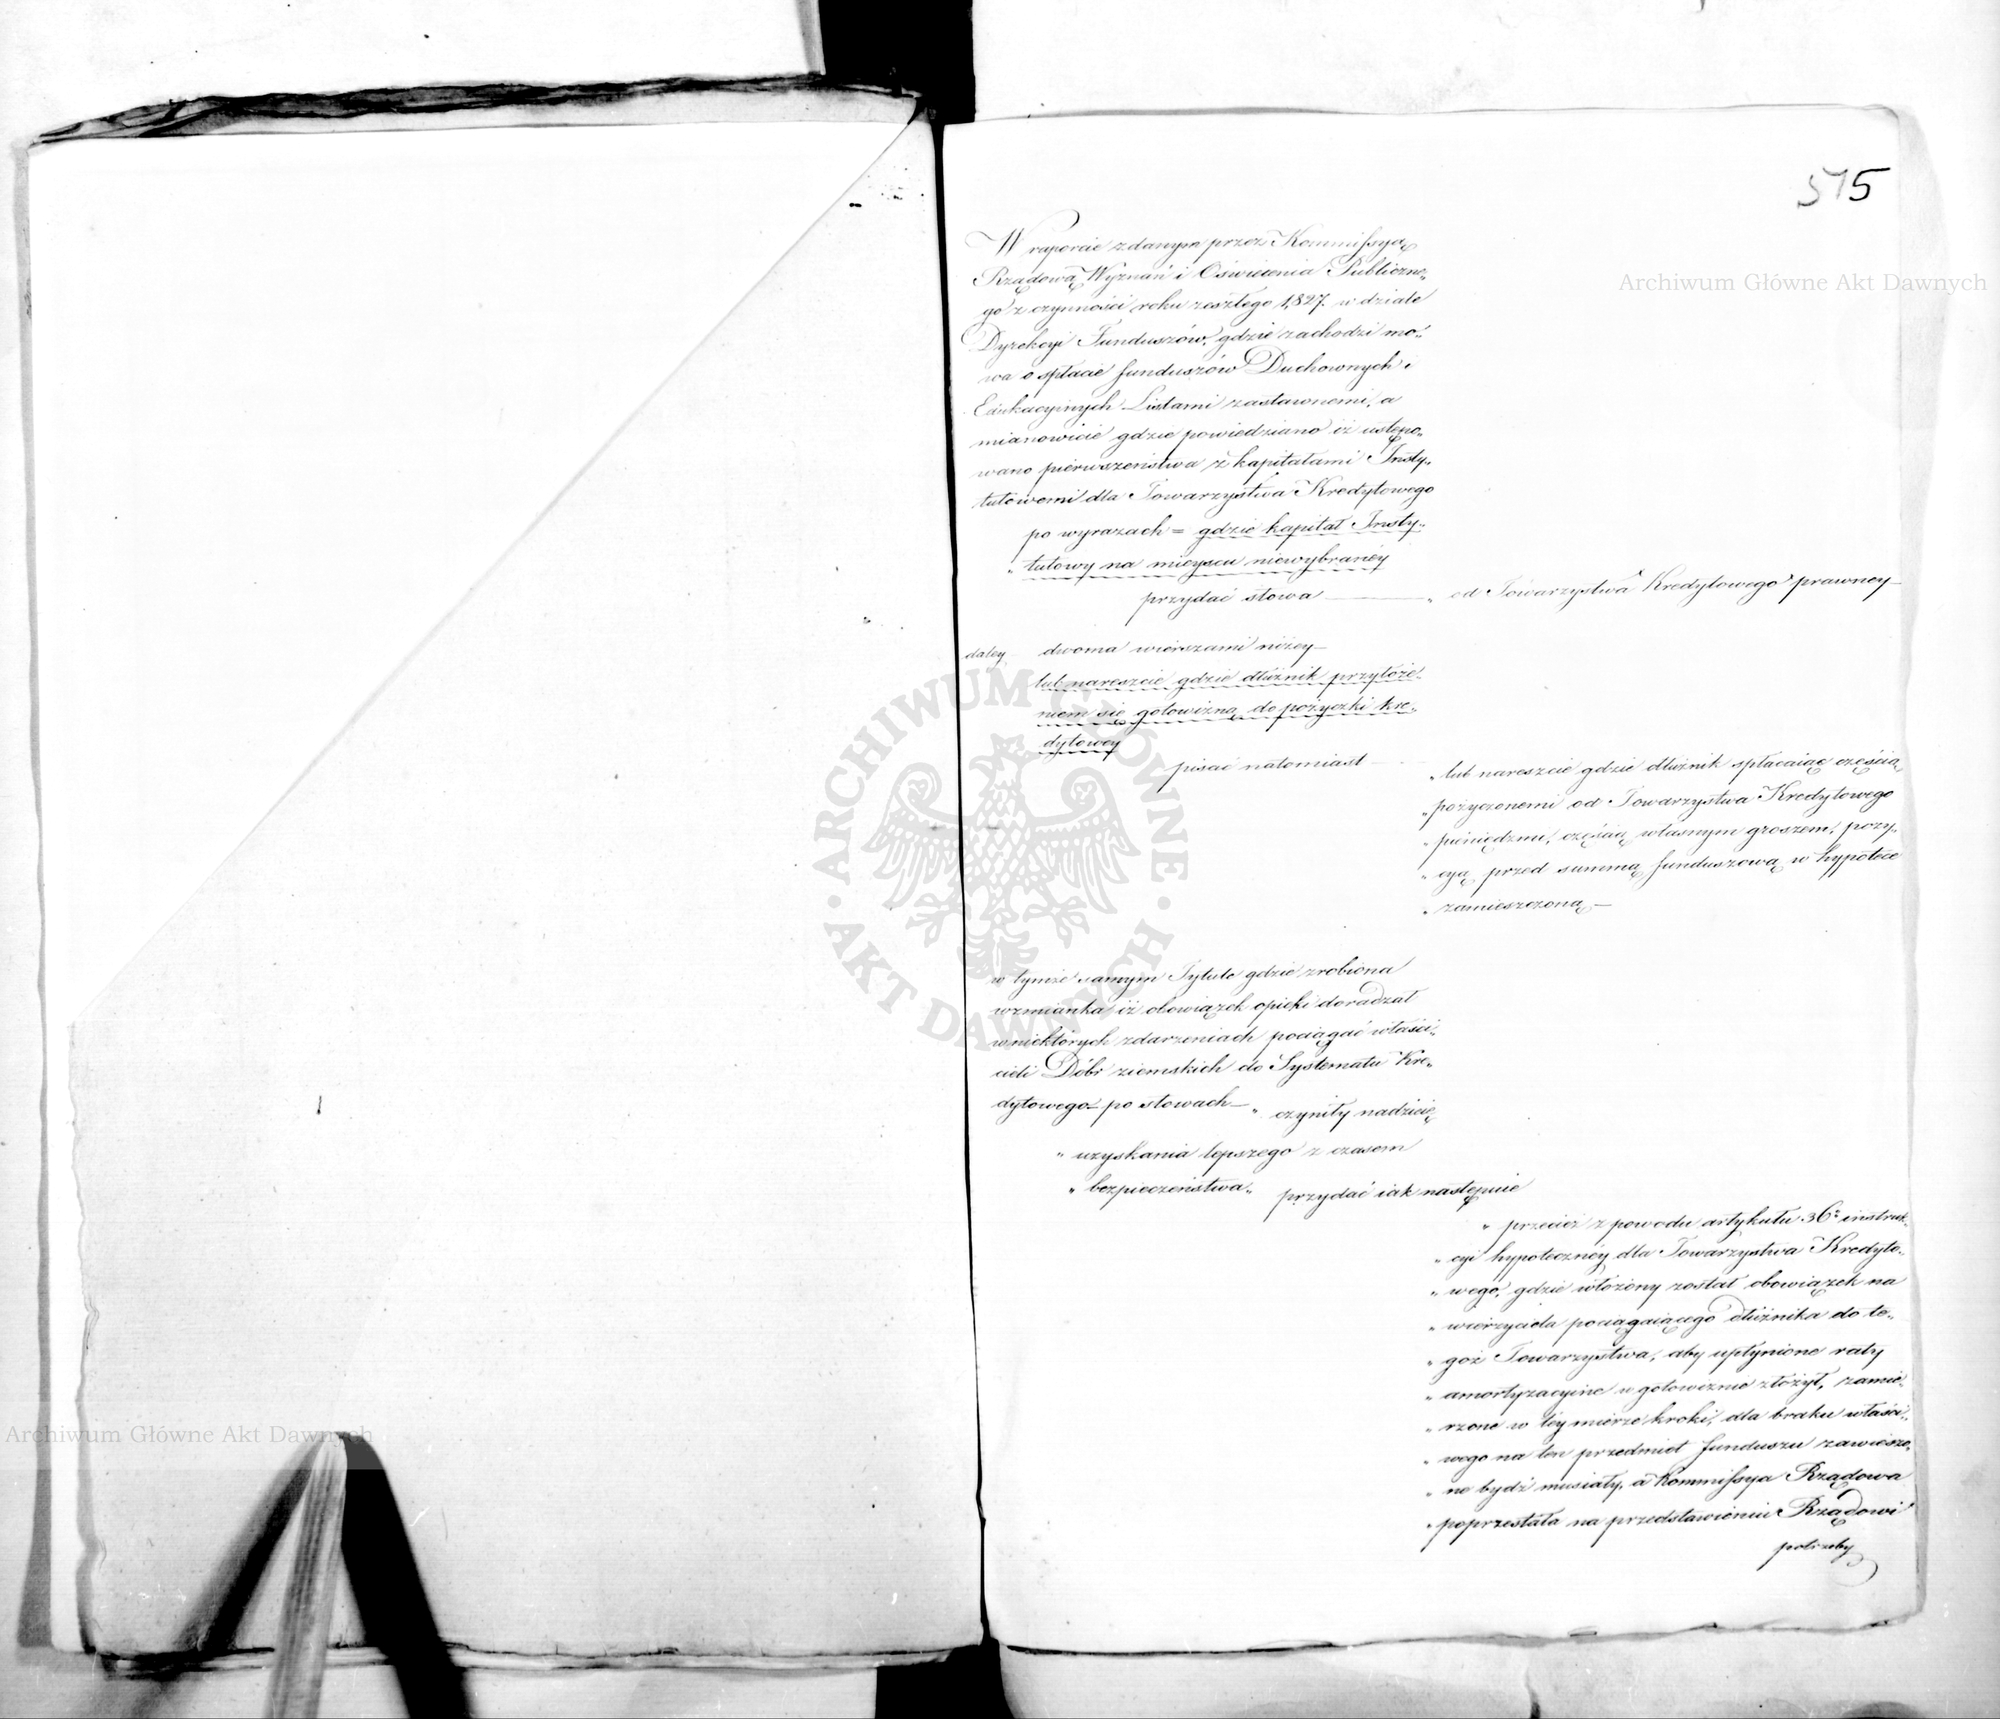 515
W raporcie zdanym przez Kommissyą
Rządową Wyznań i Oświecenia Publiczne„
go z czynności roku zeszłego 1,827. w dziale
Dyrekcyi Funduszów, gdzie zachodzi mo„
wa o spłacie funduszów Duchownych i
Edukacyinych Listami zastawnemi, a
mianowicie gdzie powiedziano iż ustępo„
wano pierwszeństwa z kapitałami Insty„
tutowemi dla Towarzystwa Kredytowego
po wyrazach = gdzie kapitał Insty„
„ tutowy na mieyscu niewybraney
przydać słowa — „ od Towarzystwa Kredytowego prawney —
daley dwoma wierszami niżey —
lub nareszcie gdzie dłużnik przyłoże„
niem się gotowizną do pożyczki kre„
dytowey
pisać natomiast —
„ lub nareszcie gdzie dłużnik spłacaiąc częścią
„ pożyczonemi od Towarzystwa Kredytowego
„ pieniędzmi, częścią własnym groszem, pozy„
„ cyą przed summą funduszową w hypotece
„ zamieszczoną —
w tymże samym Tytule gdzie zrobiona
wzmianka iż obowiązek opieki doradzał
w niektórych zdarzeniach pociągać właści„
cieli Dóbr ziemskich do Systematu Kre„
dytowego — po słowach — „ czyniły nadzieię
„ uzyskania lepszego z czasem
„ bezpieczeństwa „ przydać iak następuie
„ przecież z powodu artykułu 36º instruk„
„ cyi hypoteczney dla Towarzystwa Kredyto„
„ wego, gdzie włożony został obowiązek na
„ wierzyciela pociągaiącego dłużnika do te„
„ goż Towarzystwa, aby upłynione raty
„ amortyzacyine w gotowiznie złożył, zamie„
„ rzone w tey mierze kroki, dla braku właści„
„ wego na ten przedmiot funduszu zawieszo„
„ ne bydź musiały, a Kommissya Rządowa
„ poprzestała na przedstawieniu Rządowi
potrzeby
Archiwum Główne Akt Dawnych
Archiwum Główne Akt Dawnych
ARCHIWUM GŁÓWNE · AKT DAWNYCH ·